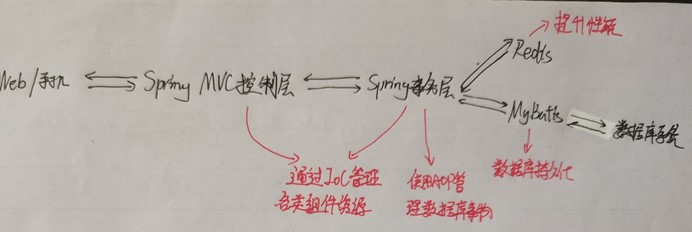 提升性能
Redis
Web/手机 Spring MVC 控制层 Spring事务层
MyBatis 数据库存层
通过IoC管理 使用AOP管 数据库持久化
各类组件资源 理数据库事物